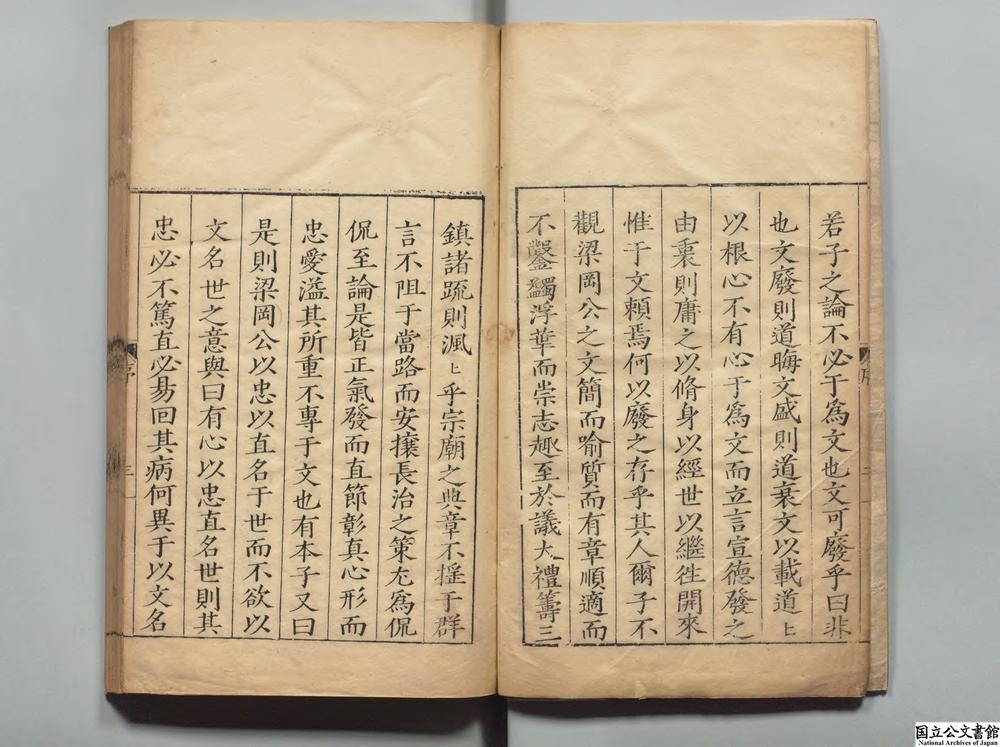 若子之論不必于為文也文可廢乎曰非
也文廢則道晦文盛則道衰文以載道〻
以根心不有心于為文而立言宣德發之
由裏則庸之以脩身以經世以繼徃開來
惟于文頼焉何以廢之存乎其人爾子不
觀梁岡公之文簡而喻質而有章順適而
不鑿蠲浮華而崇志趣至於議大禮籌三
鎮諸疏則渢〻乎宗廟之典章不揺于群
言不阻于當路而安攘長治之策尢為侃
侃至論是皆正氣發而直節彰真心形而
忠愛溢其所重不專于文也有本子又曰
是則梁岡公以忠以直名于世而不欲以
文名世之意與曰有心以忠直名世則其
忠必不篤直必易回其病何異于以文名
序
三
国立公文書館
National Archives of Japan